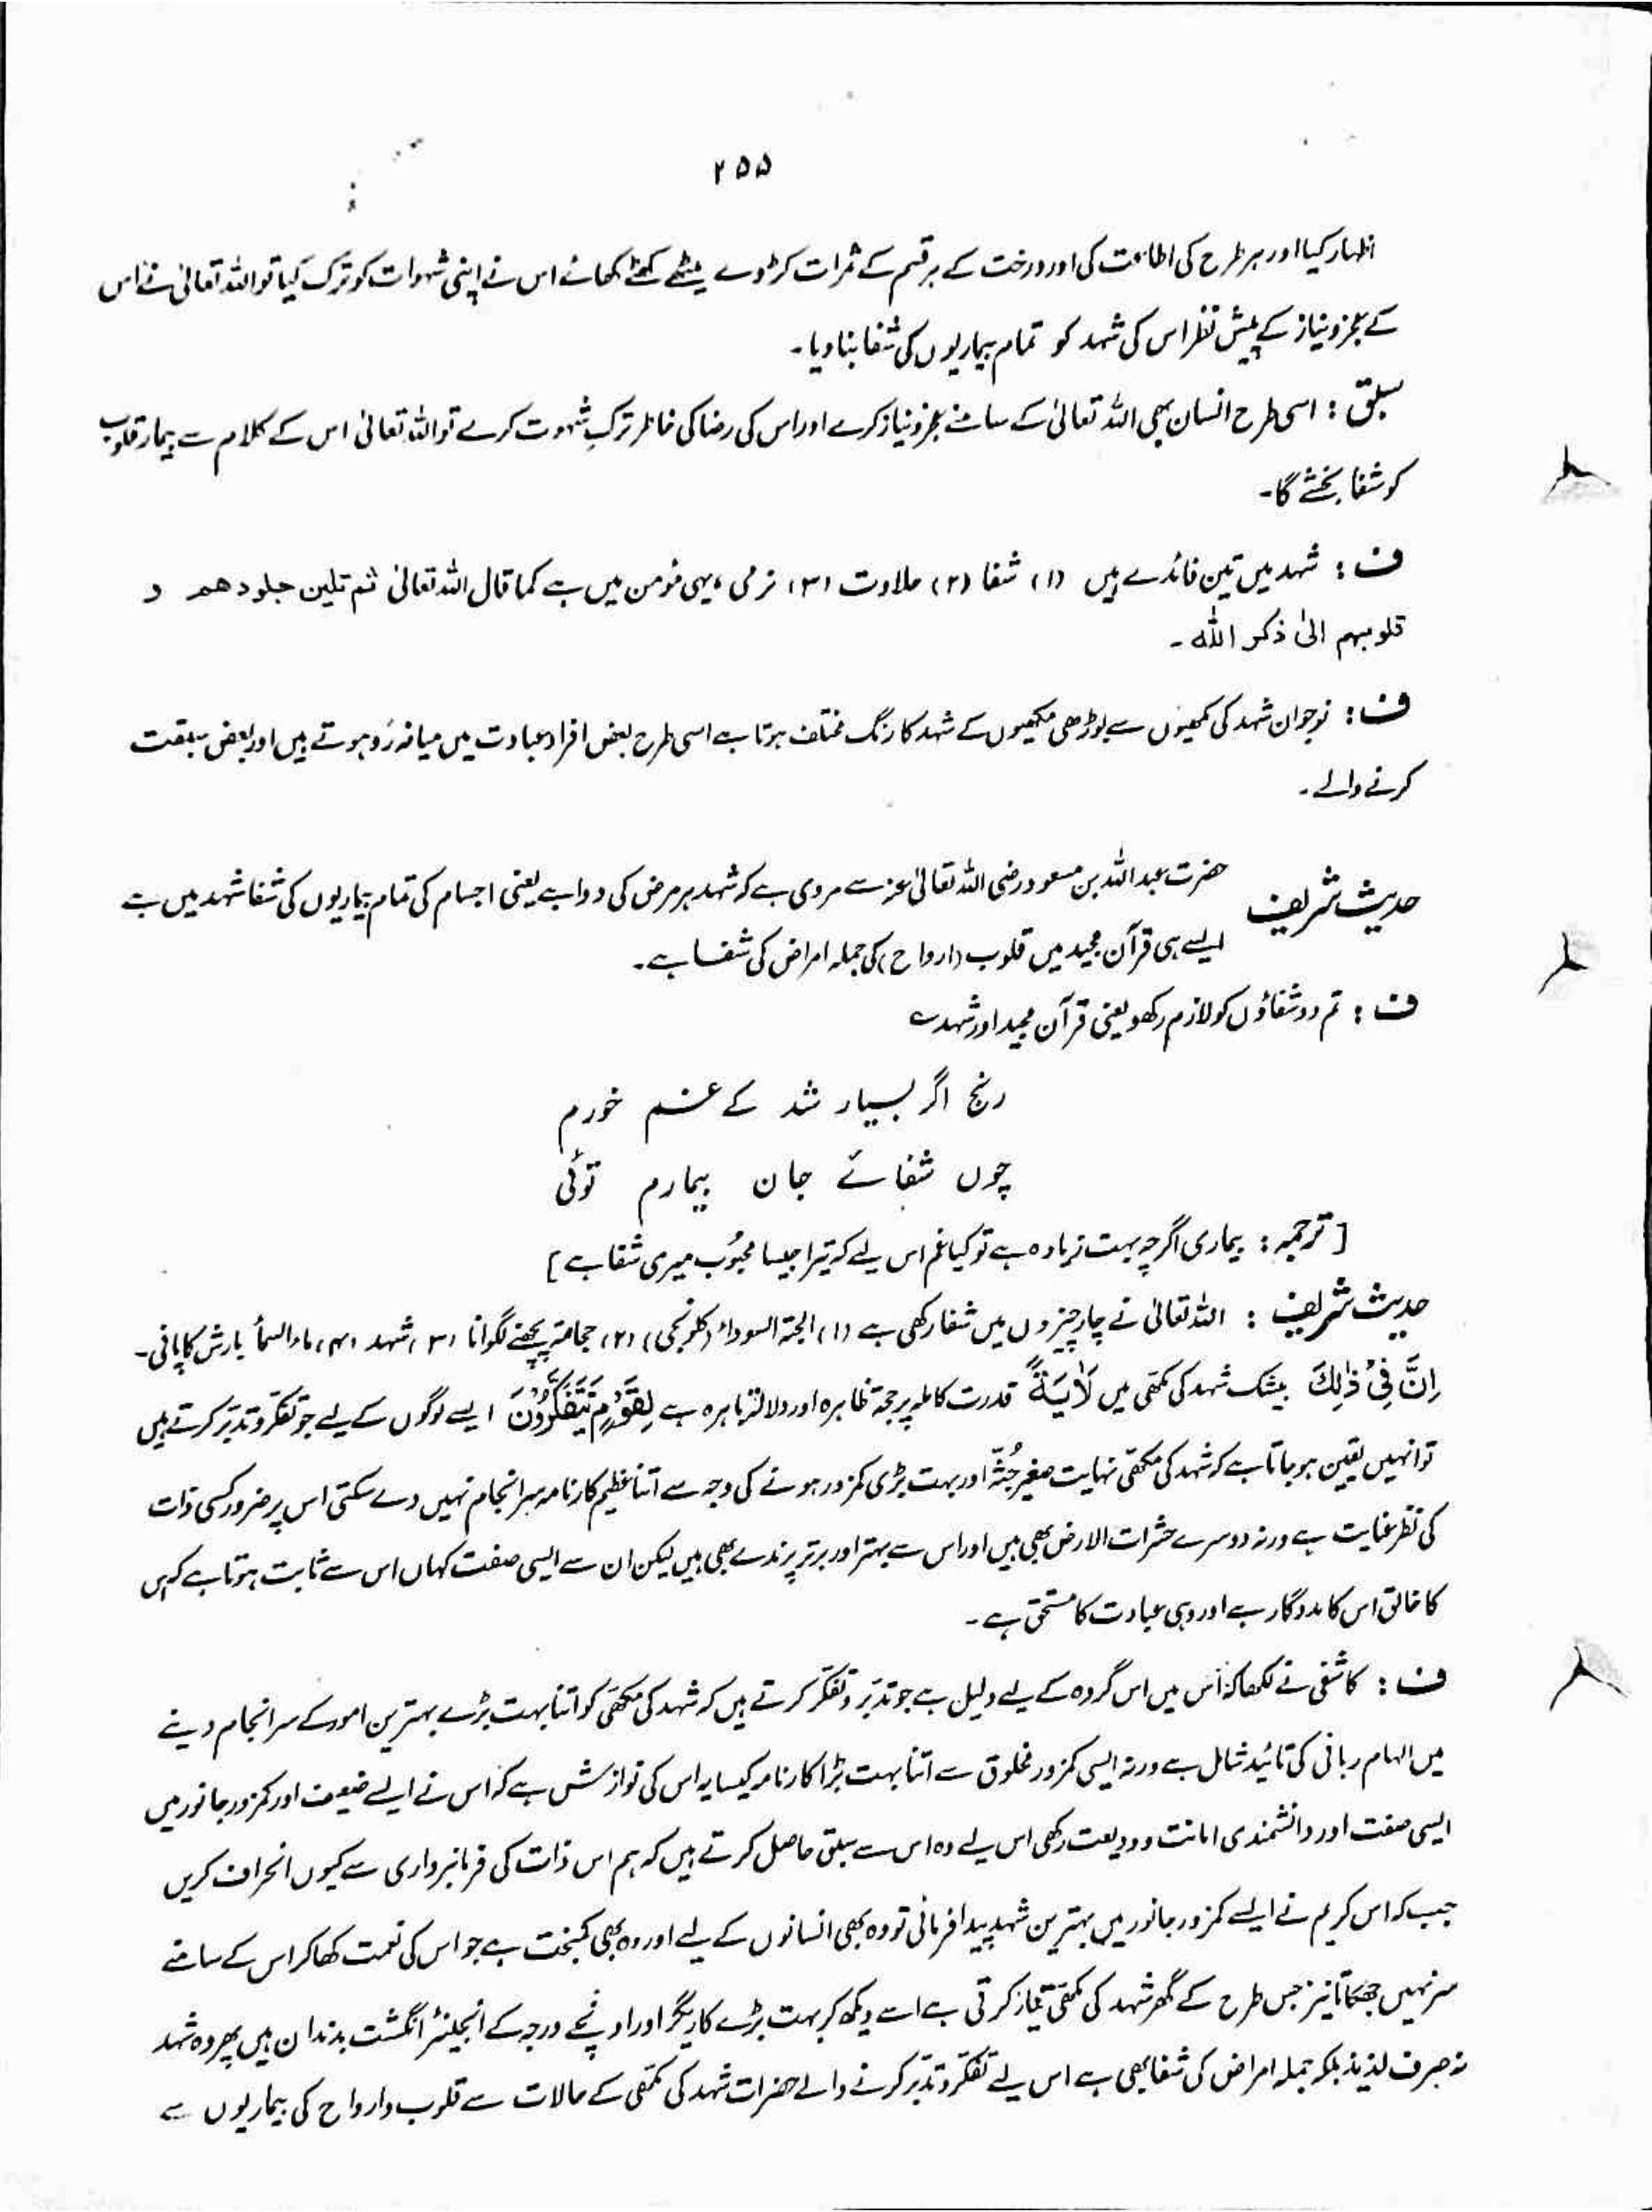 ۲۵۵
اظہار کیا اور ہر طرح کی اطاعت کی اور درخت کے ہر قسم کے ثمرات کڑوے میٹھے کھٹے کھائے اس نے اپنی شہوات کو ترک کیا تو اللہ تعالیٰ نے اس
کے عجز و نیاز کے پیش نظر اس کی شہد کو تمام بیماریوں کی شفا بنا دیا۔
سبق : اسی طرح انسان بھی اللہ تعالیٰ کے سامنے عجز و نیاز کرے اور اس کی رضا کی خاطر ترکِ شہوت کرے تو اللہ تعالیٰ اس کے کلام سے بیمار قلوب
کو شفا بخشے گا۔
ف : شہد میں تین فائدے ہیں (۱) شفا (۲) حلاوت (۳) نرمی ، یہی مومن میں ہے کما قال اللہ تعالیٰ ثم تلین جلودھم و
قلوبہم الیٰ ذکر اللہ ۔
ف : نوجوان شہد کی مکھیوں سے بوڑھی مکھیوں کے شہد کا رنگ مختلف ہوتا ہے اسی طرح بعض افراد عبادت میں میانہ رَو ہوتے ہیں اور بعض سبقت
کرنے والے ۔
حدیث شریف حضرت عبد اللہ بن مسعود رضی اللہ تعالیٰ عنہ سے مروی ہے کہ شہد ہر مرض کی دوا ہے یعنی اجسام کی تمام بیماریوں کی شفا شہد میں ہے
ایسے ہی قرآن مجید میں قلوب (ارواح) کی جملہ امراض کی شفا ہے۔
ف : تم دو شفاؤں کو لازم رکھو یعنی قرآن مجید اور شہد ؎
رنج اگر بسیار شد کے غم خورم
چوں شفائے جان بیمارم توئی
[ ترجمہ : بیماری اگرچہ بہت زیادہ ہے تو کیا غم اس لیے کہ تیرا جیسا محبُوب میری شفا ہے ]
حدیث شریف : اللہ تعالیٰ نے چار چیزوں میں شفا رکھی ہے (۱) الحبۃ السوداء (کلونجی) (۲) حجامۃ پچھنے لگوانا (۳) شہد (۴) ماء السماء بارش کا پانی۔
اِنَّ فِیْ ذٰلِکَ بیشک شہد کی مکھی میں لَاٰیَۃً قدرت کاملہ پر حجۃ ظاہرہ اور دلالۃ باہرہ ہے لِقَوْمٍ یَّتَفَکَّرُوْنَ ایسے لوگوں کے لیے جو تفکر و تدبّر کرتے ہیں
تو انہیں یقین ہو جاتا ہے کہ شہد کی مکھی نہایت صغیر جُثّہ اور بہت بڑی کمزور ہونے کی وجہ سے اتنا عظیم کارنامہ سرانجام نہیں دے سکتی اس پر ضرور کسی ذات
کی نظرِ عنایت ہے ورنہ دوسرے حشرات الارض بھی ہیں اور اس سے بہتر اور برتر پرندے بھی ہیں لیکن ان سے ایسی صفت کہاں اس سے ثابت ہوتا ہے کہ اس
کا خالق اس کا مددگار ہے اور وہی عبادت کا مستحق ہے ۔
ف : کاشفی نے لکھا کہ اس میں اس گروہ کے لیے دلیل ہے جو تدبّر و تفکّر کرتے ہیں کہ شہد کی مکھی کو اتنا بہت بڑے بہترین امور کے سرانجام دینے
میں الہام ربانی کی تائید شامل ہے ورنہ ایسی کمزور مخلوق سے اتنا بہت بڑا کارنامہ کیسا یہ اس کی نوازش ہے کہ اس نے ایسے ضعیف اور کمزور جانور میں
ایسی صفت اور دانشمندی امانت و ودیعت رکھی اس لیے وہ اس سے سبق حاصل کرتے ہیں کہ ہم اس ذات کی فرمانبرداری سے کیوں انحراف کریں
جب کہ اس کریم نے ایسے کمزور جانور میں بہترین شہد پیدا فرمائی تو وہ بھی انسانوں کے لیے اور وہ بھی کمبخت ہے جو اس کی نعمت کھا کر اس کے سامنے
سر نہیں جھکاتا نیز جس طرح کے گھر شہد کی مکھی تیار کرتی ہے اسے دیکھ کر بہت بڑے کاریگر اور اونچے درجہ کے انجینئر انگشت بدنداں ہیں پھر وہ شہد
نہ صرف لذیذ بلکہ جملہ امراض کی شفا بھی ہے اس لیے تفکّر و تدبّر کرنے والے حضرات شہد کی مکھی کے حالات سے قلوب و ارواح کی بیماریوں سے